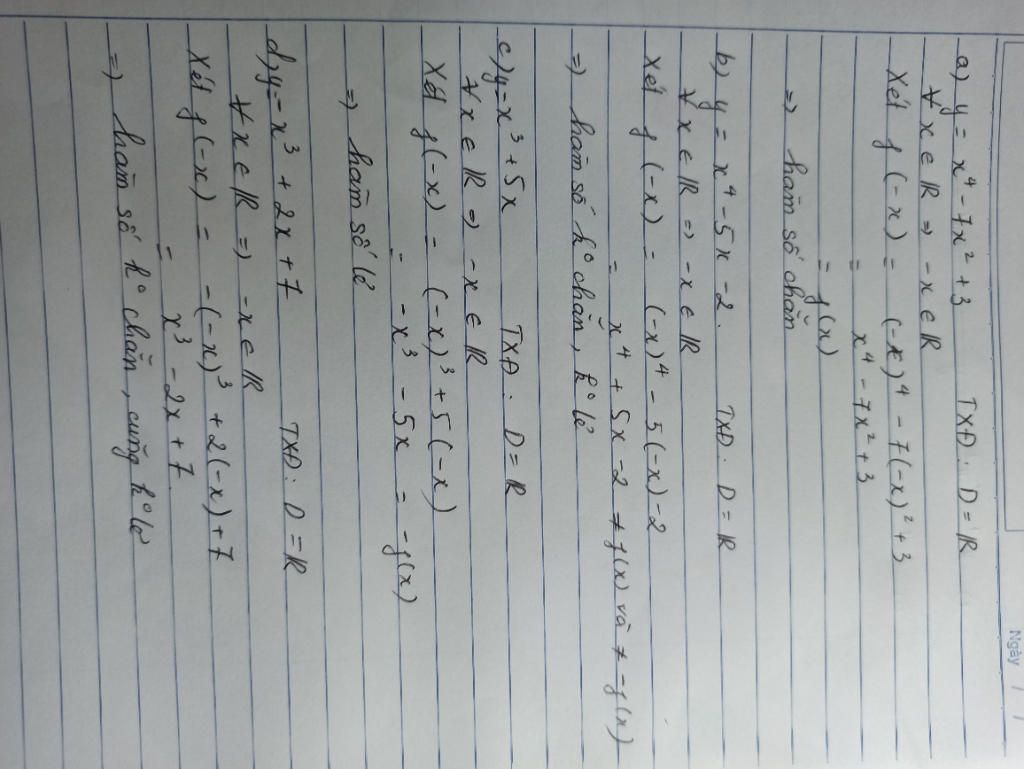 Ngày / /
a) y = x⁴ - 7x² + 3 TXĐ: D = R
∀x ∈ R ⇒ -x ∈ R
Xét f(-x) = (-x)⁴ - 7(-x)² + 3
= x⁴ - 7x² + 3
= f(x)
⇒ hàm số chẵn
b) y = x⁴ - 5x - 2. TXĐ: D = R
∀x ∈ R ⇒ -x ∈ R
Xét f(-x) = (-x)⁴ - 5(-x) - 2
= x⁴ + 5x - 2 ≠ f(x) và ≠ -f(x)
⇒ hàm số k° chẵn, k° lẻ
c) y = x³ + 5x TXĐ: D = R
∀x ∈ R ⇒ -x ∈ R
Xét f(-x) = (-x)³ + 5(-x)
= -x³ - 5x = -f(x)
⇒ hàm số lẻ
d) y = -x³ + 2x + 7 TXĐ: D = R
∀x ∈ R ⇒ -x ∈ R
Xét f(-x) = -(-x)³ + 2(-x) + 7
= x³ - 2x + 7
⇒ hàm số k° chẵn, cũng k° lẻ